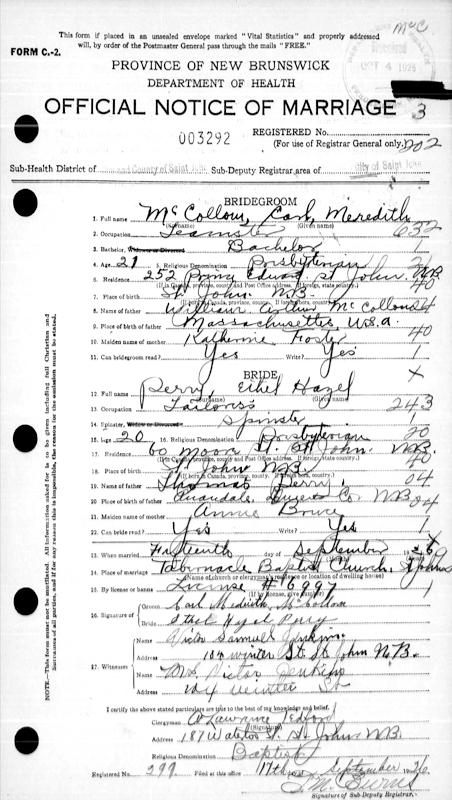 McC
This form if placed in an unsealed envelope marked "Vital Statistics" and properly addressed
will, by order of the Postmaster General pass through the mails "FREE."
FORM C.-2.
OCT 4 1926
PROVINCE OF NEW BRUNSWICK
DEPARTMENT OF HEALTH
OFFICIAL NOTICE OF MARRIAGE 3
003292 REGISTERED No.
(For use of Registrar General only) 202
Sub-Health District of and County of Saint John Sub-Deputy Registrar area of City of Saint John
BRIDEGROOM
1. Full name McCollom, Carl Meredith
(Surname) (Given name)
2. Occupation Teamster 632
3. Bachelor, Widower or Divorced Bachelor 1
4. Age 21 5. Religious Denomination Presbyterian
6. Residence 252 Prince Edward St St John NB
(If in Canada, province, county and Post Office address. If foreign, state country)
7. Place of birth St John N.B. 40
(If in Canada, province, county. If foreign born, state country)
8. Name of father William Arthur McCollom
9. Place of birth of father Massachusetts U.S.A.
10. Maiden name of mother Katherine Foster 40
11. Can bridegroom read? Yes Write? Yes 1
BRIDE X
12. Full name Perry, Ethel Hazel
(Surname) (Given name)
13. Occupation Tailoress 243
14. Spinster, Widow or Divorced Spinster 1
15. Age 20 16. Religious Denomination Presbyterian 20
17. Residence 60 Moore St. St John N.B.
(If in Canada, province, county and Post Office address. If foreign, state country)
18. Place of birth St John N.B. 40
(If in Canada, province, county. If foreign born, state country)
19. Name of father Thomas Perry 04
20. Place of birth of father Queens Co. NB 04
21. Maiden name of mother Annie Bruce
22. Can bride read? Yes Write? Yes 1
23. When married Fifteenth day of September 1926
24. Place of marriage Tabernacle Baptist Church, St John
(Name of church or clergyman's residence or location of dwelling house)
25. By license or banns License #6997 1
(If by license, give number)
26. Signature of
Groom Carl Meredith McCollom
Bride Ethel Hazel Perry
27. Witnesses
Name Victor Samuel Jenkins
Address 104 Winter St. St John N.B.
Name Mrs Victor Jenkins
Address 104 Winter St
I certify the above stated particulars are true to the best of my knowledge and belief.
Clergyman A Lawrence Tedford
(Signature)
Address 187 Waterloo St. St. John N.B.
Religious Denomination Baptist
Registered No. 299 Filed at this office 17th September 1926
Signature of Sub-Deputy Registrar.
NOTE.—This form must not be mutilated. All information asked for is to be given including full Christian and
Surnames of all parties, and if for any reason this is impossible, the reason for the omission must be stated.